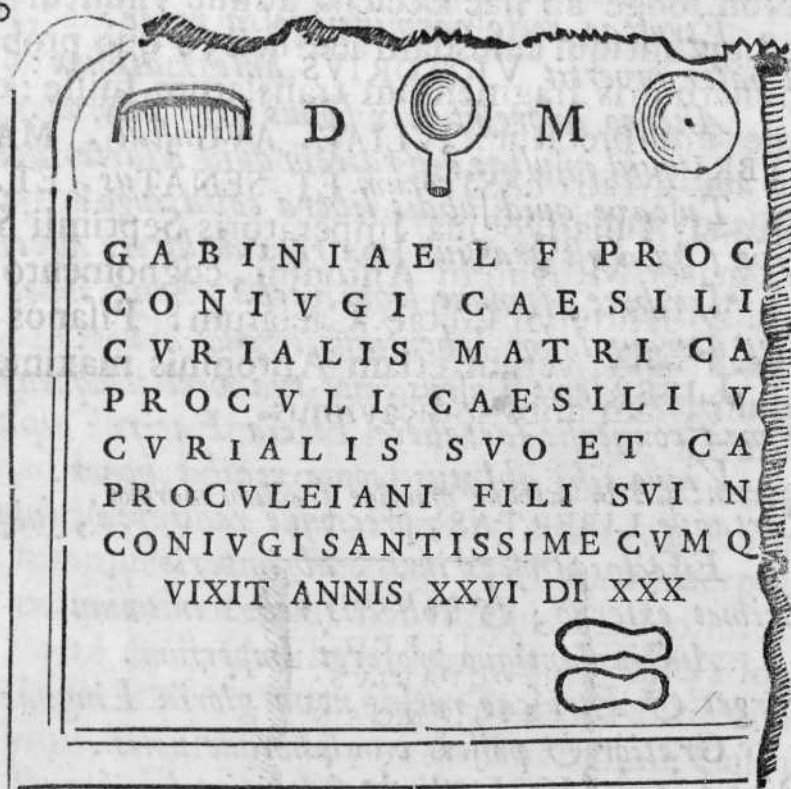 D M
GABINIAE L F PROC
CONIVGI CAESILI
CVRIALIS MATRI CA
PROCVLI CAESILI V
CVRIALIS SVO ET CA
PROCVLEIANI FILI SVI N
CONIVGI SANTISSIME CVM Q
VIXIT ANNIS XXVI DI XXX